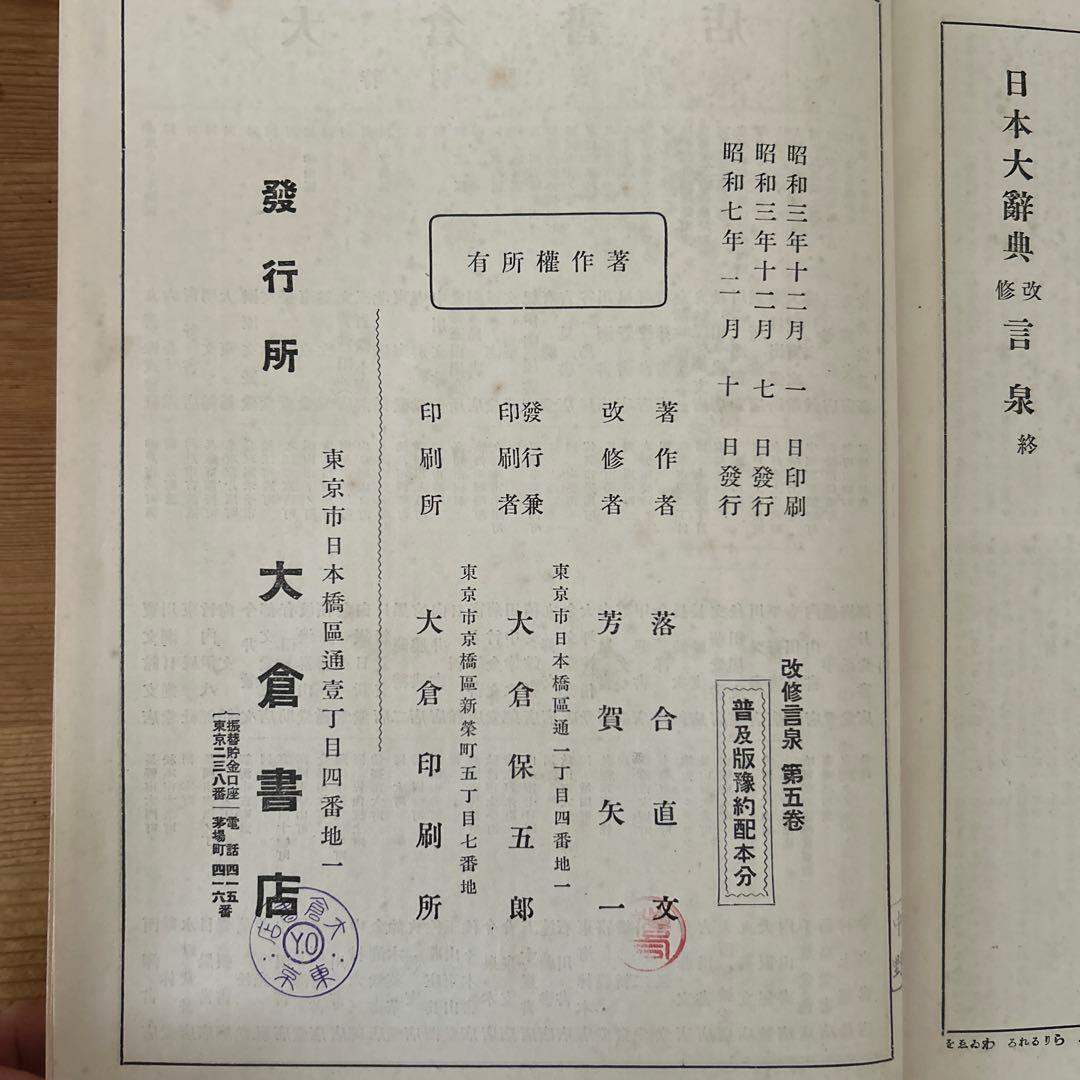 日本大辭典 改修 言泉 終
らりるれろ わゐゑを
昭和三年十二月 一 日印刷
昭和三年十二月 七 日發行
昭和七年 二月 十 日發行
改修言泉 第五卷
普及版豫約配本分
著作權所有
著作者 落合直文
改修者 芳賀矢一
東京市日本橋區通一丁目四番地一
發行兼印刷者 大倉保五郎
東京市京橋區新榮町五丁目七番地
印刷所 大倉印刷所
東京市日本橋區通壹丁目四番地一
發行所 大倉書店
振替貯金口座 東京二三八番
電話 茅場町 四一五番 四一六番
東京 大倉書店
Y.O